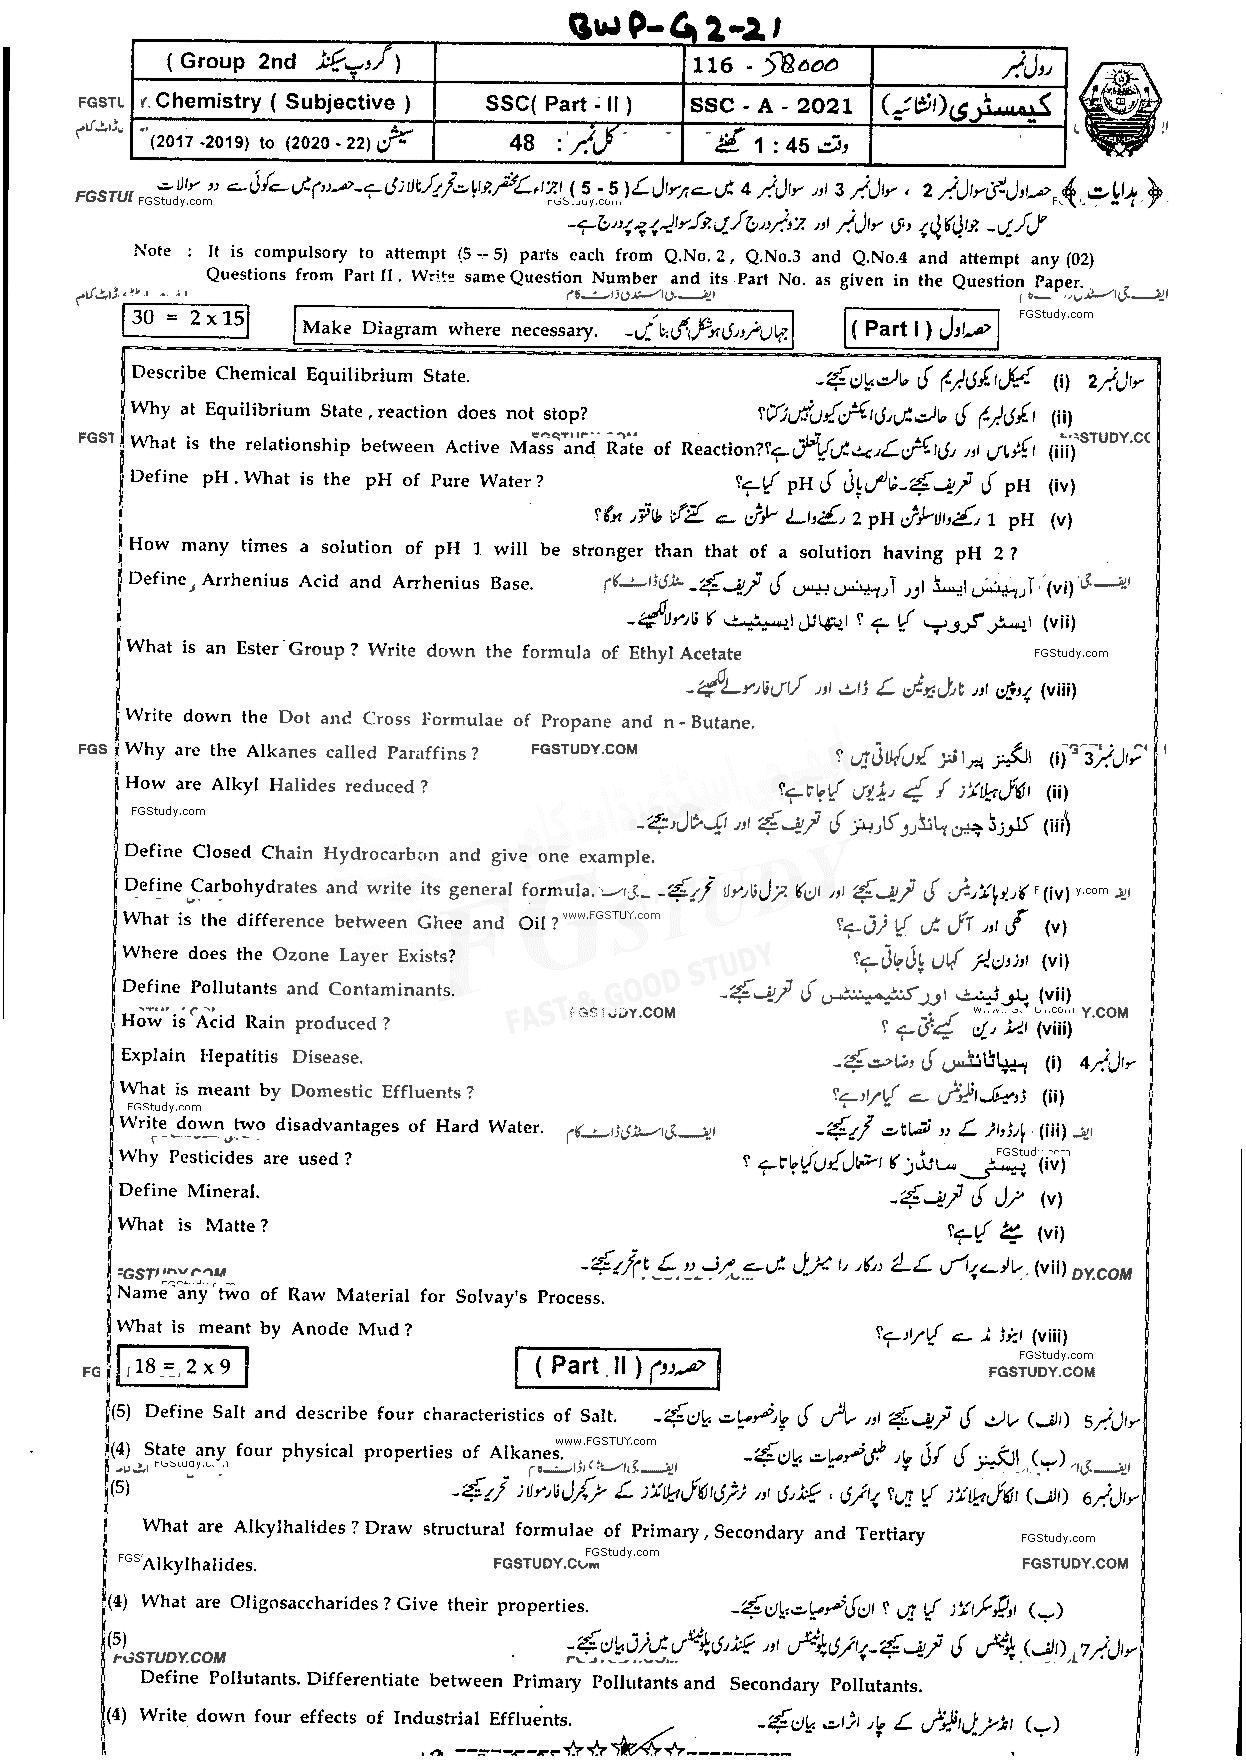 BWP-G2-21
( Group 2nd گروپ سیکنڈ ) 116 - 58000 رول نمبر
Chemistry ( Subjective ) SSC( Part - II ) SSC - A - 2021 کیمسٹری (انشائیہ)
(2017 -2019) to (2020 - 22) سیشن کل نمبر : 48 وقت 1 : 45 گھنٹے
ہدایات حصہ اول یعنی سوال نمبر 2 ، سوال نمبر 3 اور سوال نمبر 4 میں سے ہر سوال کے (5 - 5) اجزاء کے مختصر جوابات تحریر کرنا لازمی ہے۔ حصہ دوم میں سے کوئی سے دو سوالات
حل کریں۔ جوابی کاپی پر وہی سوال نمبر اور جزو نمبر درج کریں جو کہ سوالیہ پرچہ پر درج ہے۔
Note : It is compulsory to attempt (5 -- 5) parts each from Q.No. 2, Q.No.3 and Q.No.4 and attempt any (02)
Questions from Part II. Write same Question Number and its Part No. as given in the Question Paper.
FGStudy.com
30 = 2 x 15 Make Diagram where necessary. جہاں ضروری ہو شکل بھی بنائیں۔ ( Part I ) حصہ اول
Describe Chemical Equilibrium State. سوال نمبر 2 (i) کیمیکل ایکوی لبریم کی حالت بیان کیجئے۔
Why at Equilibrium State, reaction does not stop? (ii) ایکوی لبریم کی حالت میں ری ایکشن کیوں نہیں رکتا؟
What is the relationship between Active Mass and Rate of Reaction? (iii) ایکٹو ماس اور ری ایکشن کے ریٹ میں کیا تعلق ہے؟
Define pH. What is the pH of Pure Water? (iv) pH کی تعریف کیجئے۔ خالص پانی کی pH کیا ہے؟
(v) 1 pH رکھنے والا سلوشن 2 pH رکھنے والے سلوشن سے کتنے گنا طاقتور ہوگا؟
How many times a solution of pH 1 will be stronger than that of a solution having pH 2?
Define, Arrhenius Acid and Arrhenius Base. (vi) آرہینیس ایسڈ اور آرہینیس بیس کی تعریف کیجئے۔
(vii) ایسٹر گروپ کیا ہے ؟ ایتھائل ایسیٹیٹ کا فارمولا لکھئے۔
What is an Ester Group? Write down the formula of Ethyl Acetate FGStudy.com
(viii) پروپین اور نارمل بیوٹین کے ڈاٹ اور کراس فارمولے لکھئے۔
Write down the Dot and Cross Formulae of Propane and n - Butane.
Why are the Alkanes called Paraffins? FGSTUDY.COM سوال نمبر 3 (i) الکینز پیرافنز کیوں کہلاتی ہیں ؟
How are Alkyl Halides reduced? (ii) الکائل ہیلائڈز کو کیسے ریڈیوس کیا جاتا ہے؟
FGStudy.com (iii) کلوزڈ چین ہائڈروکاربنز کی تعریف کیجئے اور ایک مثال دیجئے۔
Define Closed Chain Hydrocarbon and give one example.
Define Carbohydrates and write its general formula. (iv) کاربوہائڈریٹس کی تعریف کیجئے اور ان کا جنرل فارمولا تحریر کیجئے۔
What is the difference between Ghee and Oil? www.FGSTUY.com (v) گھی اور آئل میں کیا فرق ہے؟
Where does the Ozone Layer Exists? (vi) اوزون لیئر کہاں پائی جاتی ہے؟
Define Pollutants and Contaminants. (vii) پلوٹینٹ اور کنٹیمینینٹس کی تعریف کیجئے۔
How is Acid Rain produced? FGSTUDY.COM (viii) ایسڈ رین کیسے بنتی ہے ؟
Explain Hepatitis Disease. سوال نمبر 4 (i) ہیپاٹائٹس کی وضاحت کیجئے۔
What is meant by Domestic Effluents? (ii) ڈومیسٹک ایفلوئنٹس سے کیا مراد ہے؟
FGStudy.com
Write down two disadvantages of Hard Water. (iii) ہارڈ واٹر کے دو نقصانات تحریر کیجئے۔
Why Pesticides are used? (iv) پیسٹی سائڈز کا استعمال کیوں کیا جاتا ہے ؟
Define Mineral. (v) منرل کی تعریف کیجئے۔
What is Matte? (vi) میٹے کیا ہے؟
(vii) سالوے پراسس کے لئے درکار را میٹریل میں سے صرف دو کے نام تحریر کیجئے۔
Name any two of Raw Material for Solvay's Process.
What is meant by Anode Mud? (viii) اینوڈ مڈ سے کیا مراد ہے؟
FGStudy.com
18 = 2 x 9 ( Part II ) حصہ دوم FGSTUDY.COM
(5) Define Salt and describe four characteristics of Salt. سوال نمبر 5 (الف) سالٹ کی تعریف کیجئے اور سالٹس کی چار خصوصیات بیان کیجئے۔
www.FGSTUY.com
(4) State any four physical properties of Alkanes. (ب) الکینز کی کوئی چار طبعی خصوصیات بیان کیجئے۔
(5) سوال نمبر 6 (الف) الکائل ہیلائڈز کیا ہیں؟ پرائمری ، سیکنڈری اور ٹرشری الکائل ہیلائڈز کے سٹرکچرل فارمولاز تحریر کیجئے۔
What are Alkylhalides? Draw structural formulae of Primary, Secondary and Tertiary FGStudy.com
Alkylhalides. FGStudy.com FGSTUDY.COM FGSTUDY.COM
(4) What are Olignosaccharides? Give their properties. (ب) اولیگوسکرائڈز کیا ہیں ؟ ان کی خصوصیات بیان کیجئے۔
(5) سوال نمبر 7 (الف) پلوٹینٹس کی تعریف کیجئے۔ پرائمری پلوٹینٹس اور سیکنڈری پلوٹینٹس میں فرق بیان کیجئے۔
FGSTUDY.COM
Define Pollutants. Differentiate between Primary Pollutants and Secondary Pollutants.
(4) Write down four effects of Industrial Effluents. (ب) انڈسٹریل ایفلوئنٹس کے چار اثرات بیان کیجئے۔